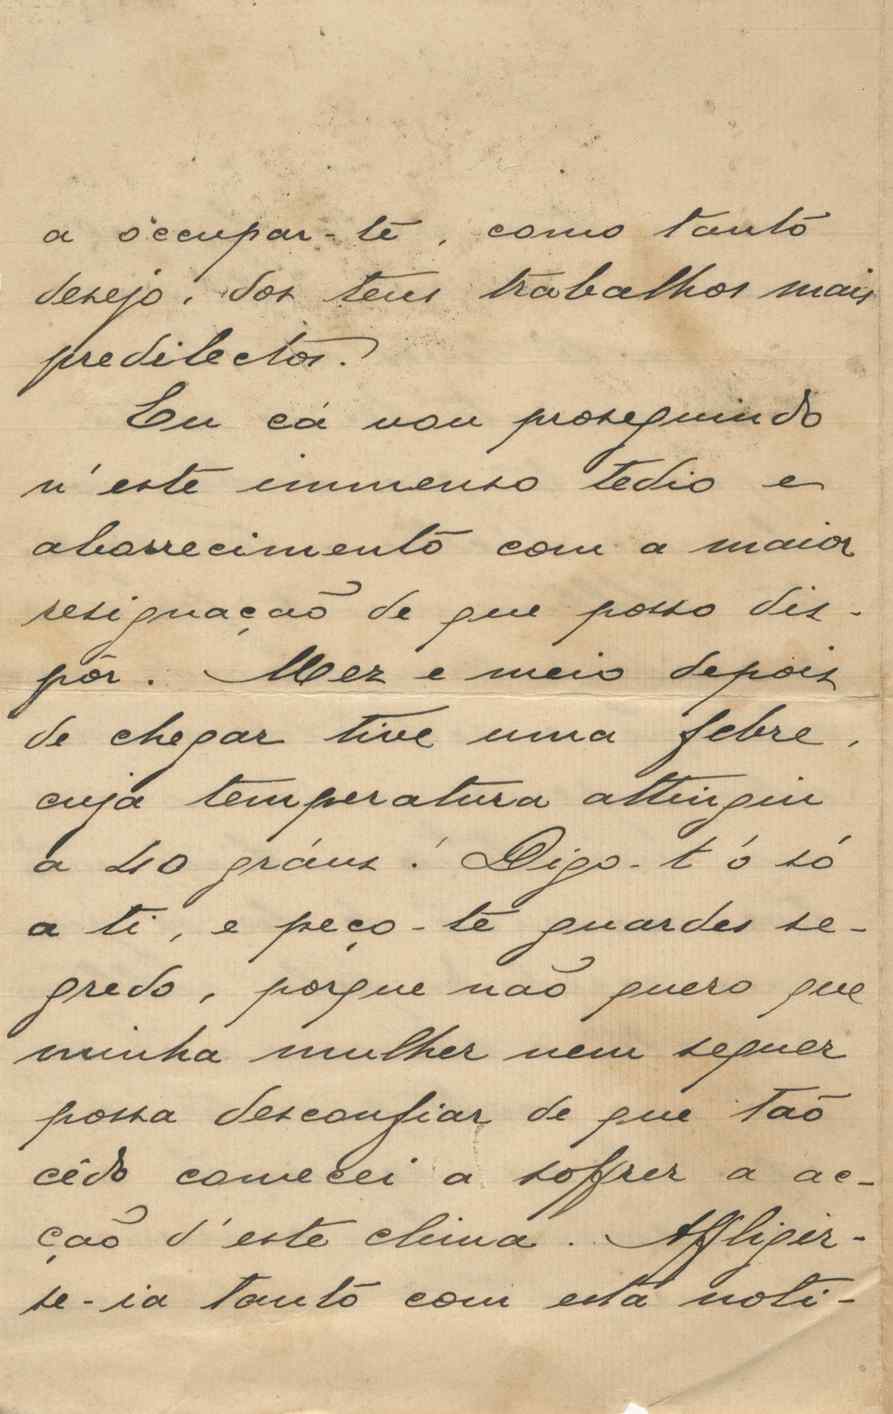 a occupar-te, como tanto
desejo, dos teus trabalhos mais
predilectos.
Eu cá vou proseguindo
n'este immenso tedio e
aborrecimento com a maior
resignação de que posso dis-
pôr. Mez e meio depois
de chegar tive uma febre,
cuja temperatura attingiu
a 40 gráus! Digo-t'o só
a ti, e peço-te guardes se-
gredo, porque não quero que
minha mulher nem sequer
possa desconfiar de que tão
cêdo comecei a soffrer a ac-
ção d'este clima. Affligir-
se-ia tanto com esta noti-